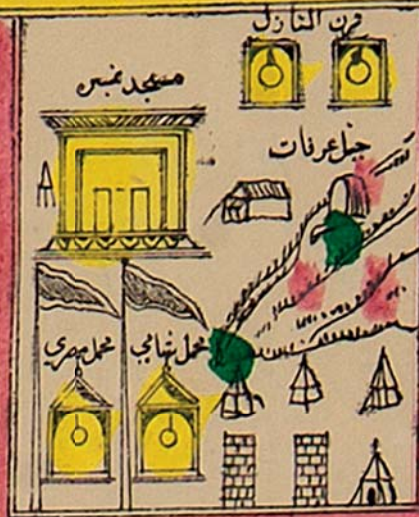 قرن المنازل
مسجد نمبر
جبل عرفات
محمل شامي
محمل مصري